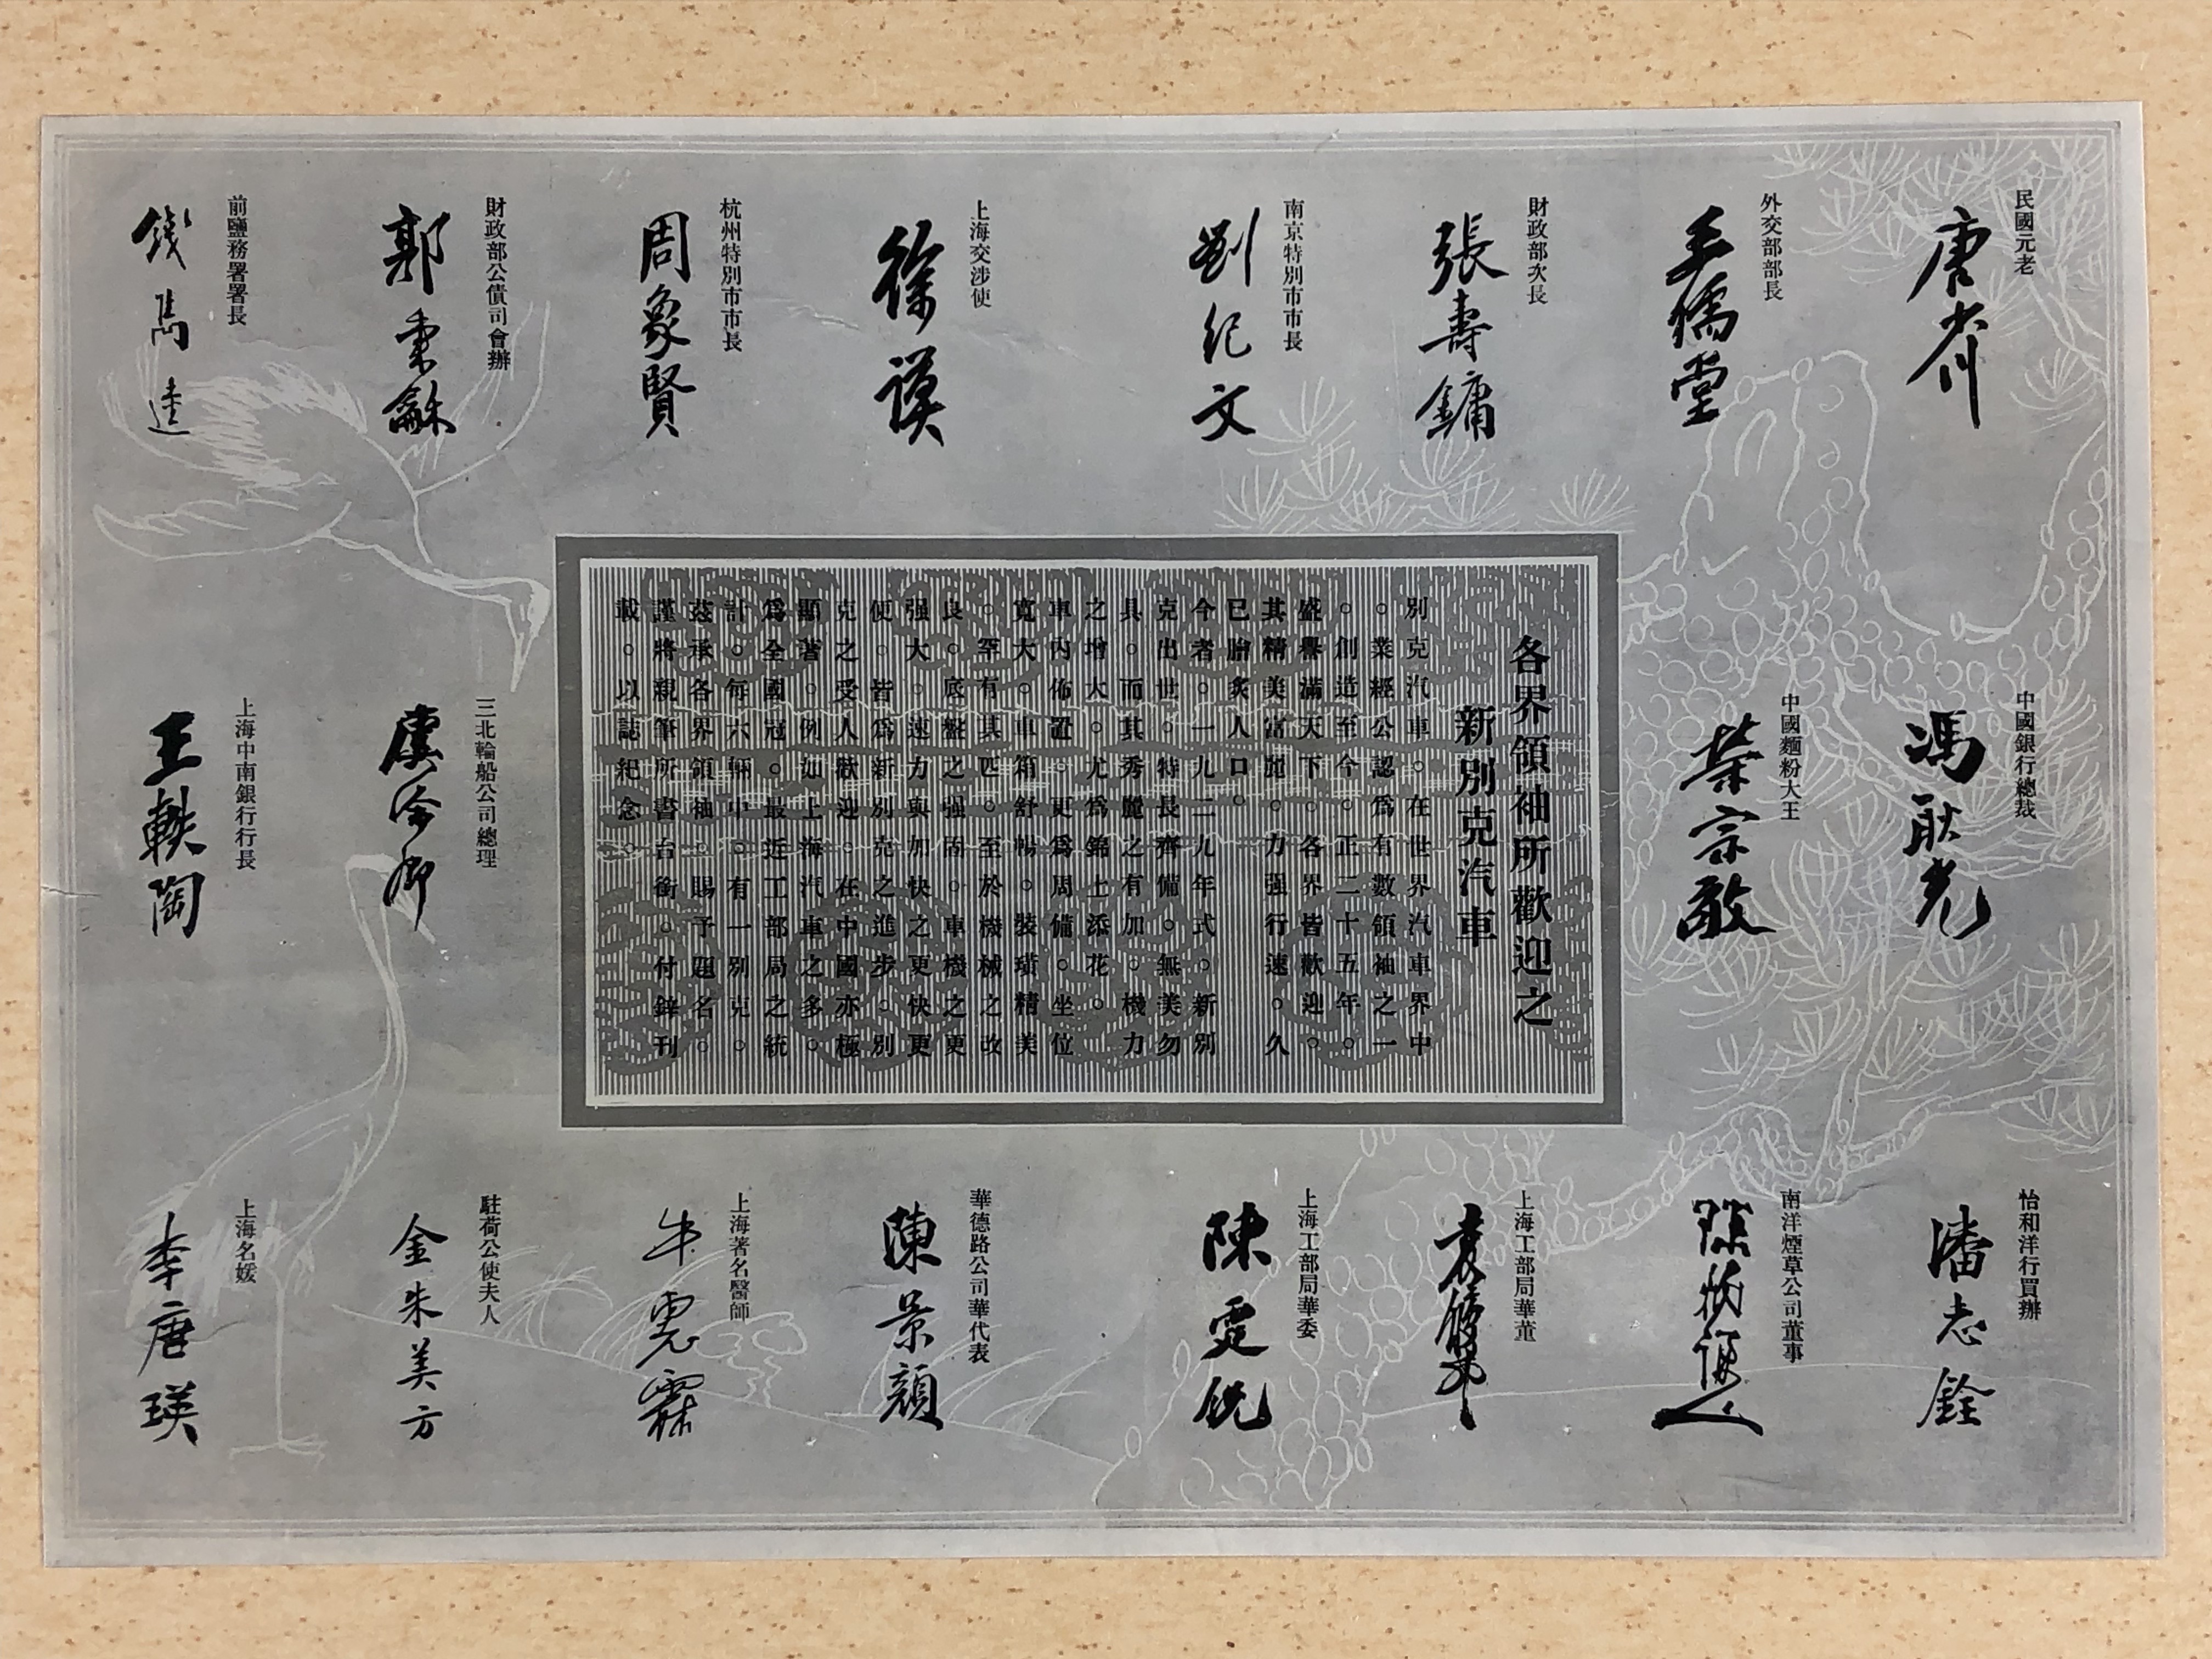 民國元老
唐少川
外交部部長
王儒堂
財政部次長
張壽鏞
南京特別市市長
劉紀文
上海交涉使
徐謨
杭州特別市市長
周象賢
財政部公債司會辦
郭秉龢
前鹽務署署長
錢雋逵
中國銀行總裁
馮耿光
中國麵粉大王
榮宗敬
各界領袖所歡迎之
新別克汽車
別克汽車。在世界汽車界中
。業經公認爲有數領袖之一
。創造至今。正二十五年。
盛譽滿天下。各界皆歡迎。
其精美富麗。力强行速。久
已膾炙人口。
今者。一九二九年式。新別
克出世。特長齊備。無美勿
具。而其秀麗之有加。機力
之增大。尤爲錦上添花。
車內佈置。更爲周備。坐位
寬大。車箱舒暢。裝璜精美
。罕有其匹。至於機械之改
良。底盤之强固。車機之更
强大。速力與加快之更快更
便。皆爲新別克之進步。別
克之受人歡迎。在中國亦極
顯著。例如上海汽車之多。
爲全國冠。最近工部局之統
計。每六輛中。有一別克。
茲承各界領袖。賜予題名。
謹將親筆所書台銜。付鋅刊
載。以誌紀念。
三北輪船公司總理
虞洽卿
上海中南銀行行長
王軼陶
怡和洋行買辦
潘志銓
南洋煙草公司董事
陳炳謙
上海工部局華董
袁履登
上海工部局華委
陳霆銳
華德路公司華代表
陳景顏
上海著名醫師
牛惠霖
駐荷公使夫人
金朱美方
上海名媛
李唐瑛